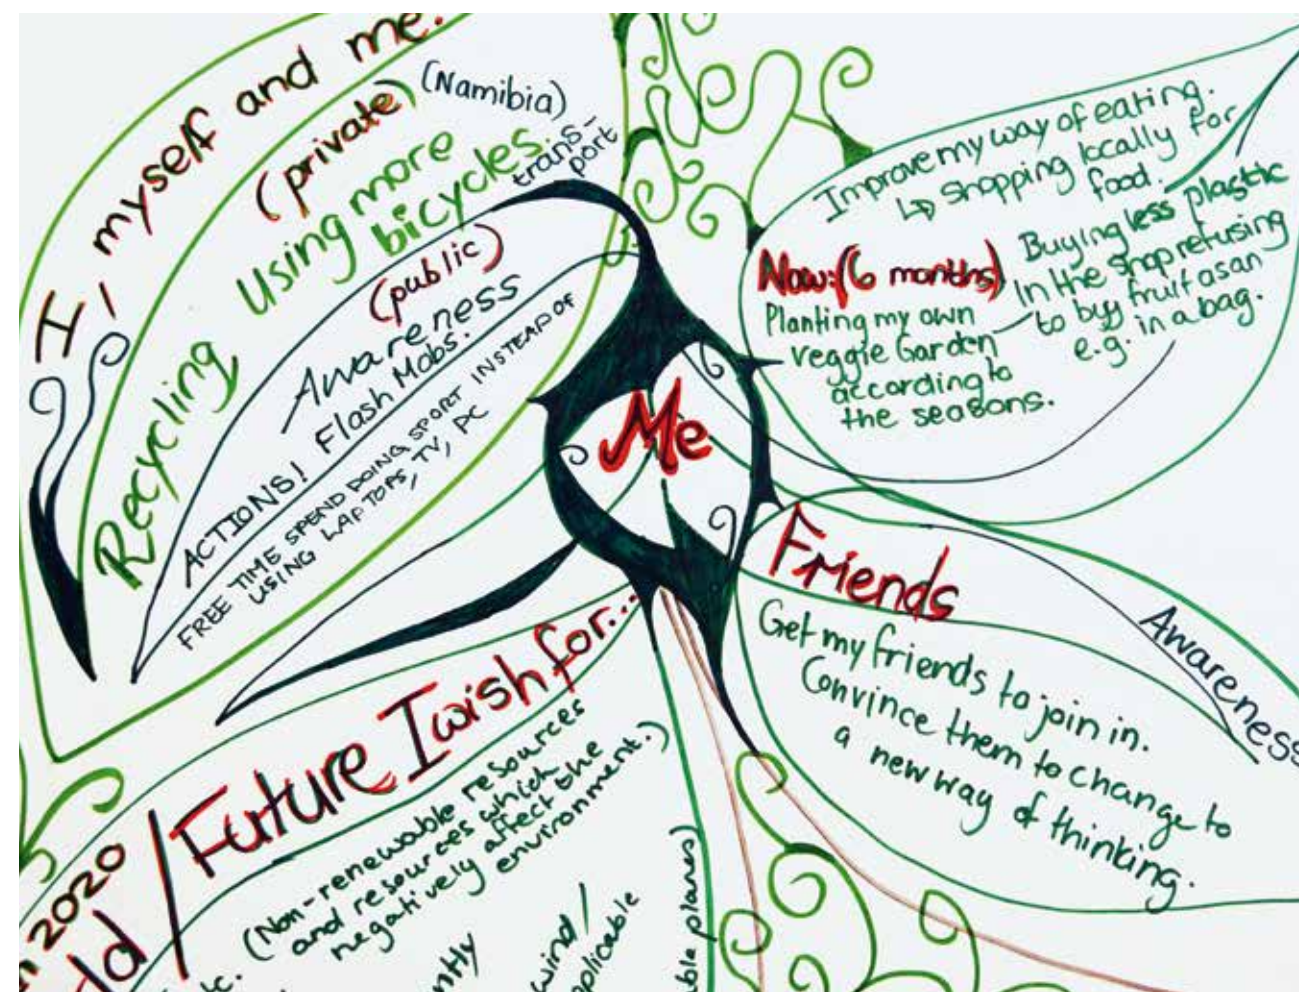 I, myself and me.
(private)
(Namibia)
Using more
bicycles.
trans-
port
Recycling
(public)
Awareness
ACTIONS! Flash Mobs.
FREE TIME SPEND DOING SPORT INSTEAD OF
USING LAPTOPS, TV, PC
Me
Improve my way of eating.
↳ shopping locally for
food.
Now: (6 months)
Planting my own
veggie Garden
according to
the seasons.
Buying less plastic
in the shop refusing
to buy fruit as an
e.g. in a bag.
Friends
Get my friends to join in.
Convince them to change to
a new way of thinking.
Awareness
2020
/Future I wish for...
(Non-renewable resources
and resources which
negatively affect the
environment.)
wind/